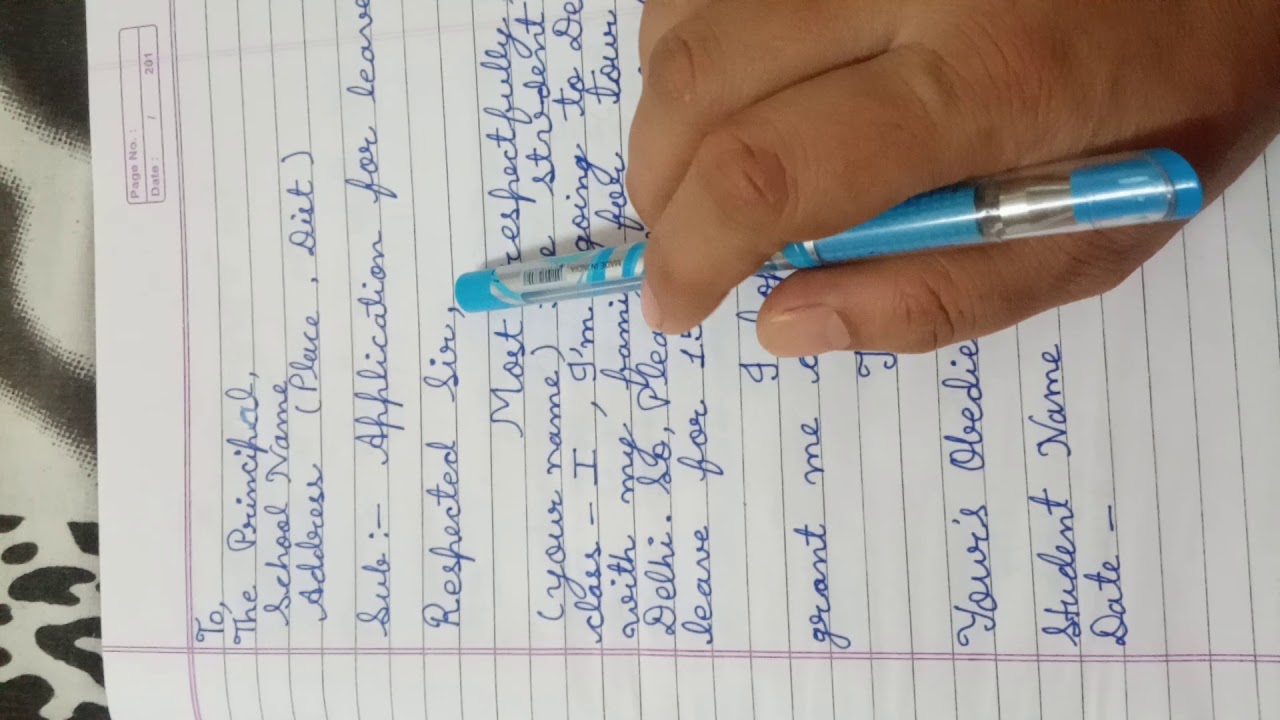 Page No. :
Date : / 201
To,
The Principal,
School Name
Address (Place, Dist)
Sub:- Application for leave
Respected Sir,
Most respectfully
(your name) student
class - I, I'm going to De
with my fami for tour
Delhi. So, Plea for
leave for
I
grant me
Your's Obedie
Student Name
Date -
MADE IN INDIA